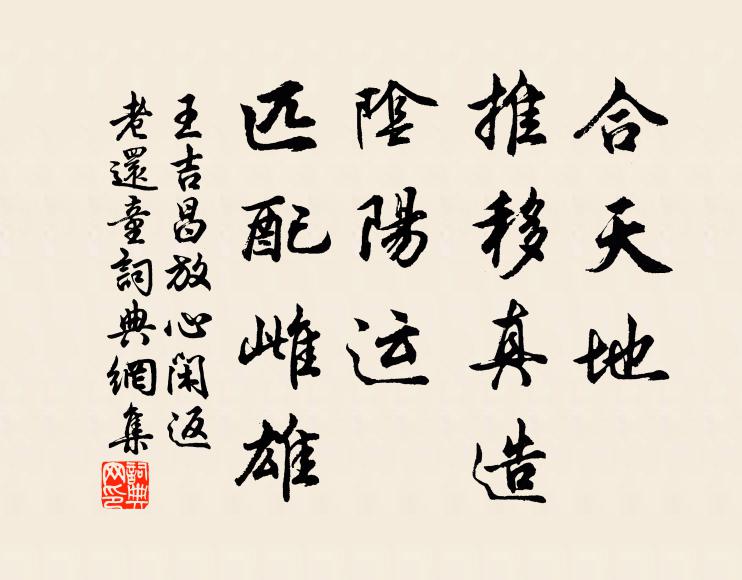 合天地
推移真造
陰陽运
匹配雌雄
王吉昌放心閑返
老還童詞典網集
詞典
网印